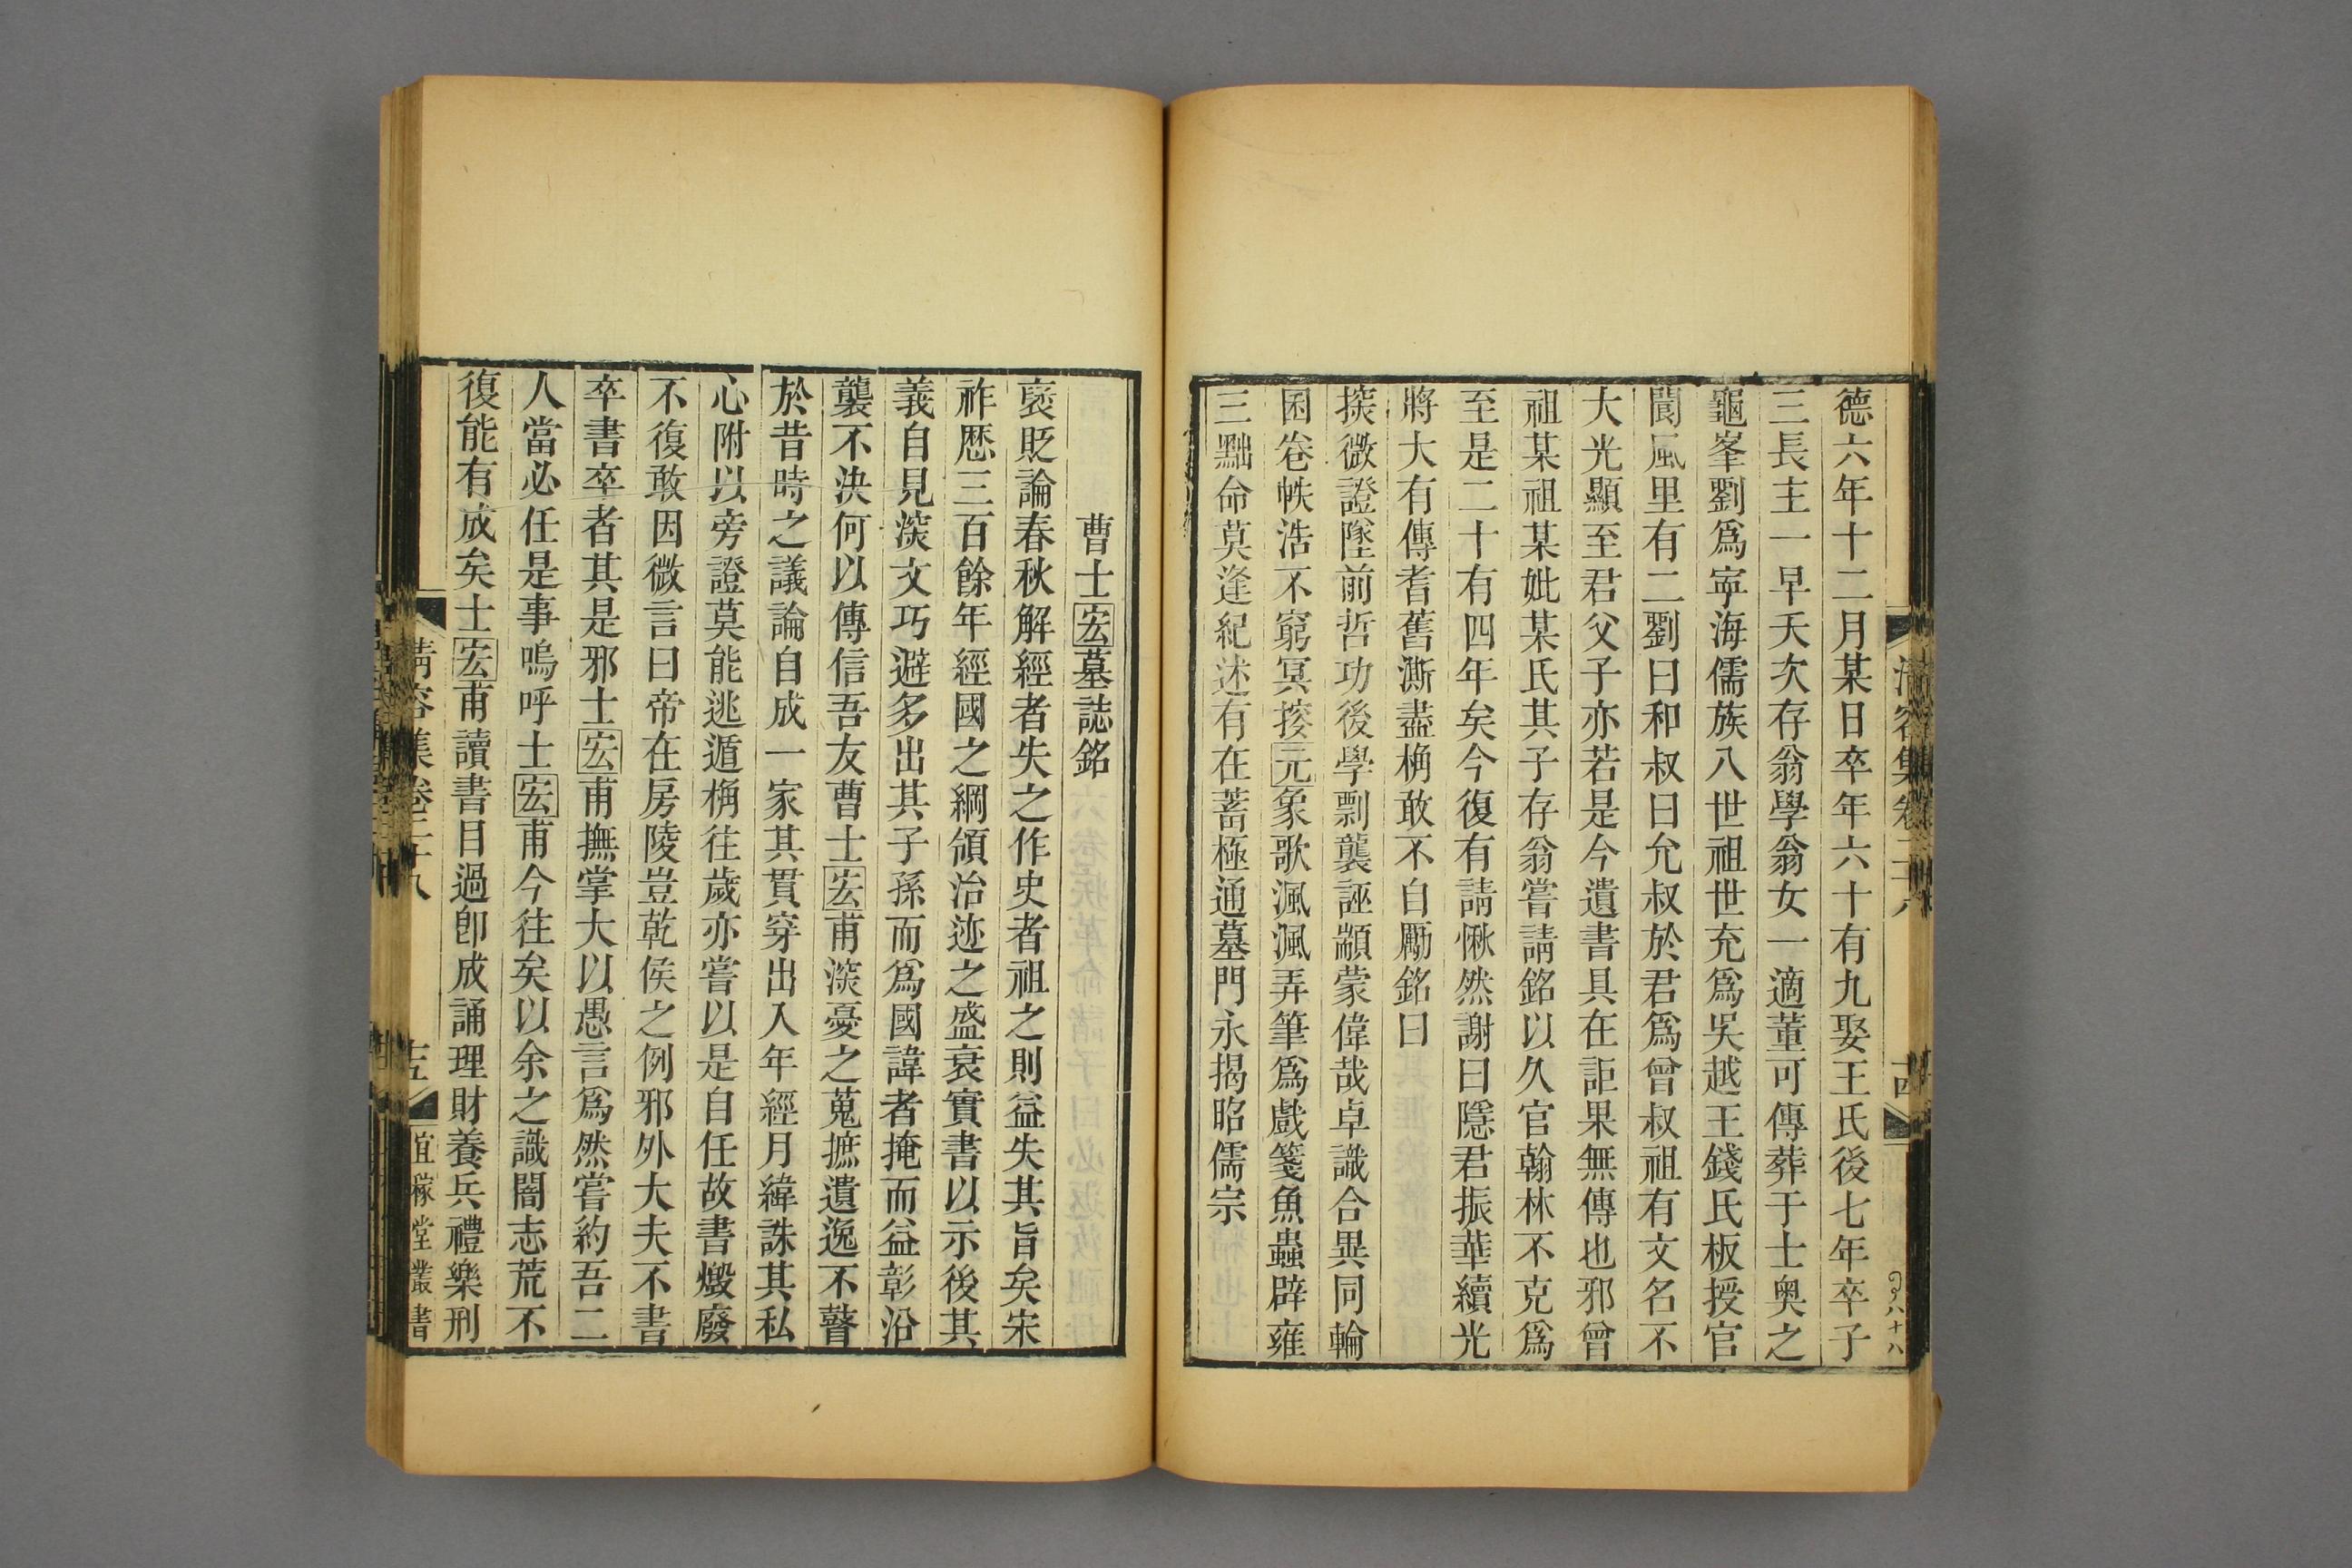 德六年十二月某日卒年六十有九娶王氏後七年卒子
三長圭一早夭次存翁學翁女一適董可傳葬于士奧之
龜峯劉爲寧海儒族八世祖世充爲吳越王錢氏板授官
閬風里有二劉曰和叔曰允叔於君爲曾叔祖有文名不
大光顯至君父子亦若是今遺書具在詎果無傳也邪曾
祖某祖某妣某氏其子存翁嘗請銘以久官翰林不克爲
至是二十有四年矣今復有請愀然謝曰隱君振華續光
將大有傳耆舊澌盡桷敢不白勵銘曰
探微證墜前哲功後學剽襲誣顓蒙偉哉卓識合異同輪
囷卷帙浩不窮冥按元象歌渢渢弄筆爲戲箋魚蟲辟雍
三黜命莫逢紀述有在蓄極通墓門永揭昭儒宗
清容集卷二十八
十四
曹士宏墓誌銘
褒貶論春秋解經者失之作史者祖之則益失其旨矣宋
祚歷三百餘年經國之綱領治迹之盛衰實書以示後其
義自見深文巧避多出其子孫而爲國諱者掩而益彰沿
襲不決何以傳信吾友曹士宏甫深憂之蒐摭遺逸不聱
於昔時之議論自成一家其貫穿出入年經月緯誅其私
心附以旁證莫能逃遁桷往歲亦嘗以是自任故書燬廢
不復敢因微言曰帝在房陵豈乾侯之例邪外大夫不書
卒書卒者其是邪士宏甫撫掌大以愚言爲然嘗約吾二
人當必任是事嗚呼士宏甫今往矣以余之識闇志荒不
復能有成矣士宏甫讀書目過卽成誦理財養兵禮樂刑
清容集卷二十八
十五
宜稼堂叢書